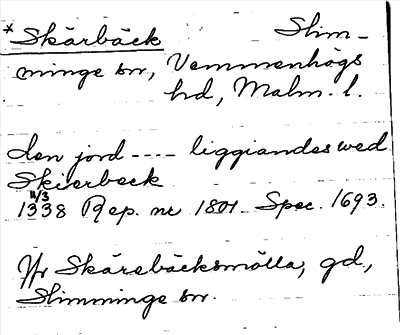 * Skärbäck Slim-
minge sn, Vemmenhögs
hd, Malm. l.
den jord ---- liggiandes wed
Skierbeck
11/3
1338 Rep. nr 1801. Spec. 1693.
Jfr Skärebäcksmölla, gd,
Slimminge sn.